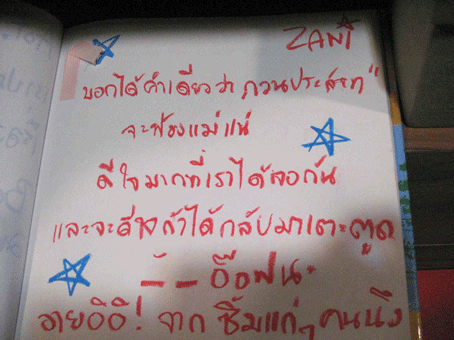 ZANI
บอกได้คำเดียวว่า กวนประสาท"
จะฟ้องแม่แน่
ดีใจมากที่เราได้เจอกัน
และจะดีใจถ้าได้กลับมาเตะตูด
อายอิอิ! จาก ซิ้มแก่ๆ คนนึง